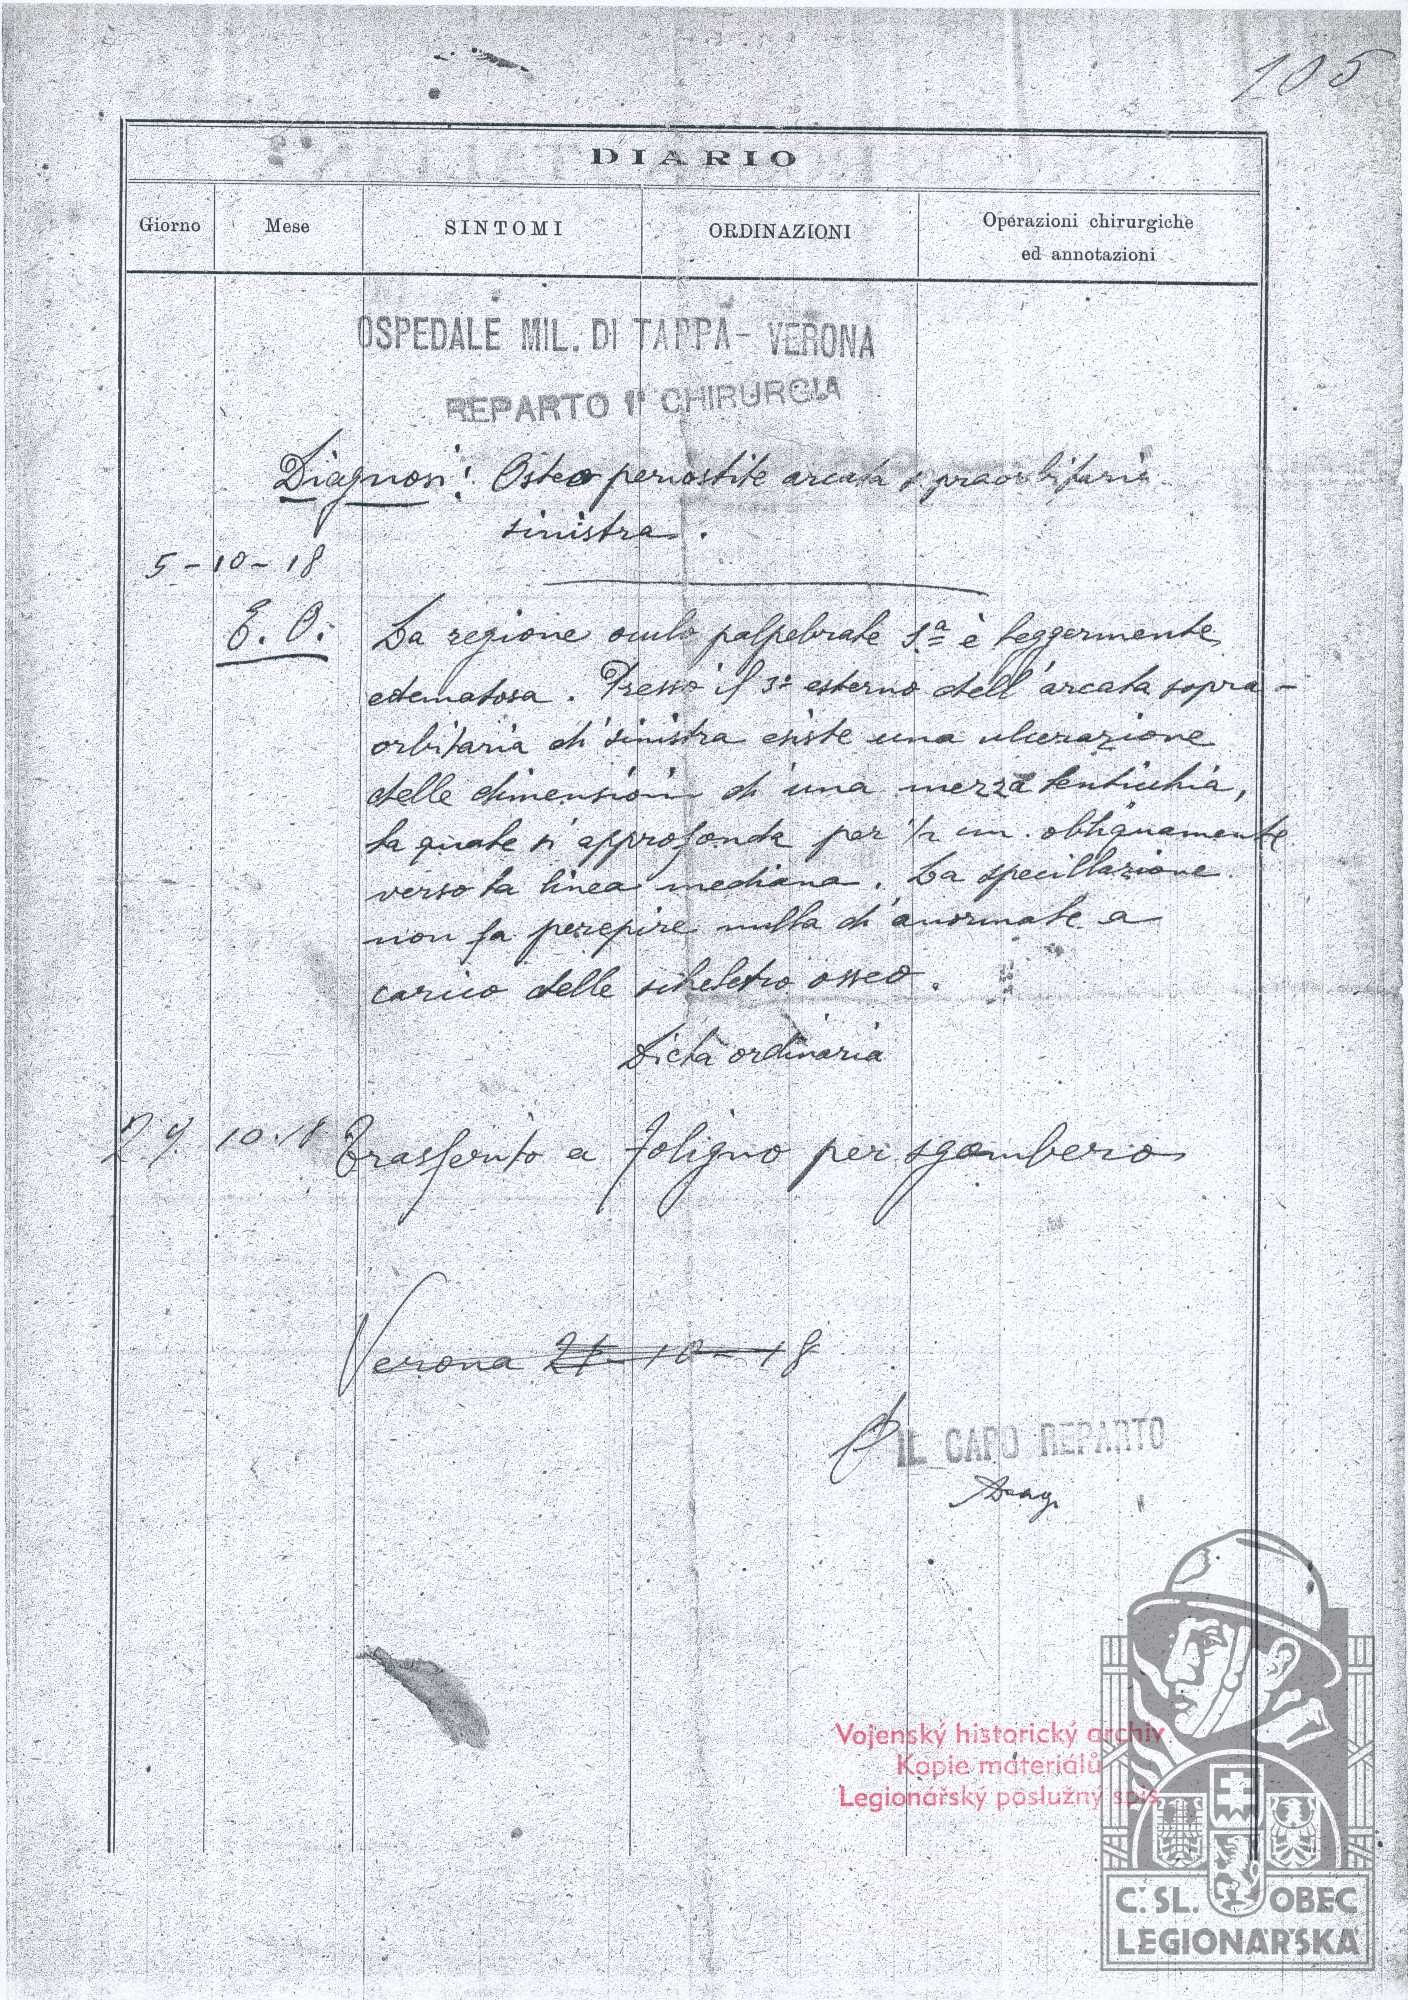 105
DIARIO
Giorno Mese SINTOMI ORDINAZIONI Operazioni chirurgiche
ed annotazioni
OSPEDALE MIL. DI TAPPA - VERONA
REPARTO 1° CHIRURGIA
Diagnosi: Osteo periostite arcata sopraorbitaria
sinistra.
5-10-18
E. O. La regione oculo palpebrale s.a è leggermente
edematosa. Presso il 3° esterno dell'arcata sopra-
orbitaria di sinistra esiste una ulcerazione
delle dimensioni di una mezza lenticchia,
la quale si approfonda per 1/2 cm. obliquamente
verso la linea mediana. La specillazione
non fa percepire nulla di anormale a
carico delle scheletro osseo.
Dieta ordinaria
29 10.18 Trasferito a Foligno per sgombero
Verona 21-10-18
IL CAPO REPARTO
Vojenský historický archiv
Kopie materiálů
Legionářský poslužný spis
Č. SL. OBEC
LEGIONÁŘSKÁ